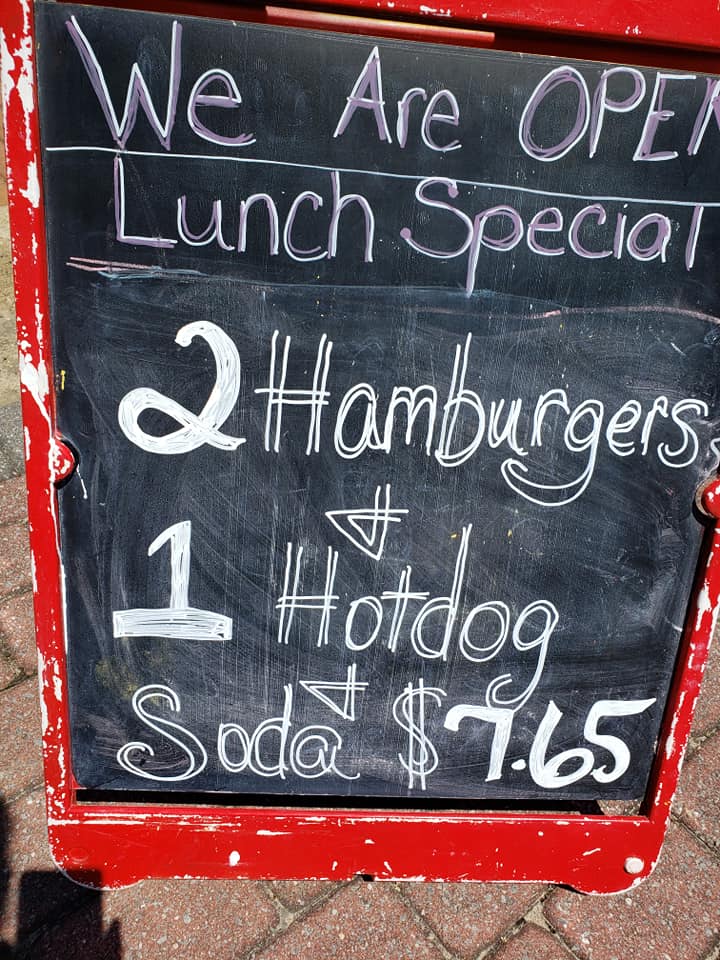 We Are OPEN
Lunch Special
2 Hamburgers
&
1 Hotdog
&
Soda $7.65